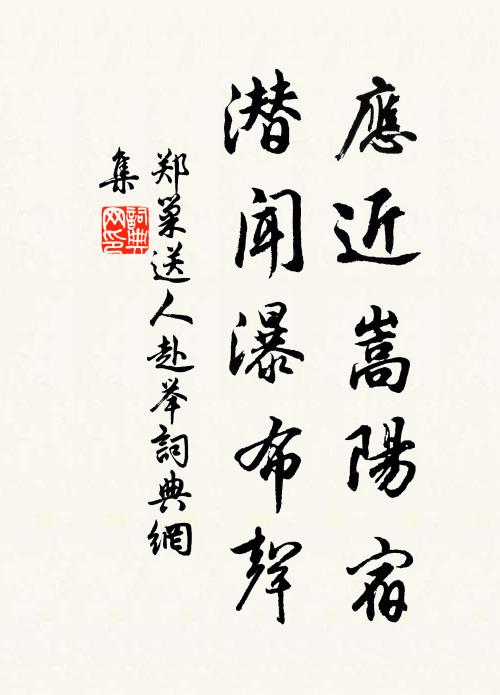 應近嵩陽宿
潜聞瀑布聲
郑巢送人赴举詞典網
集
詞典网印